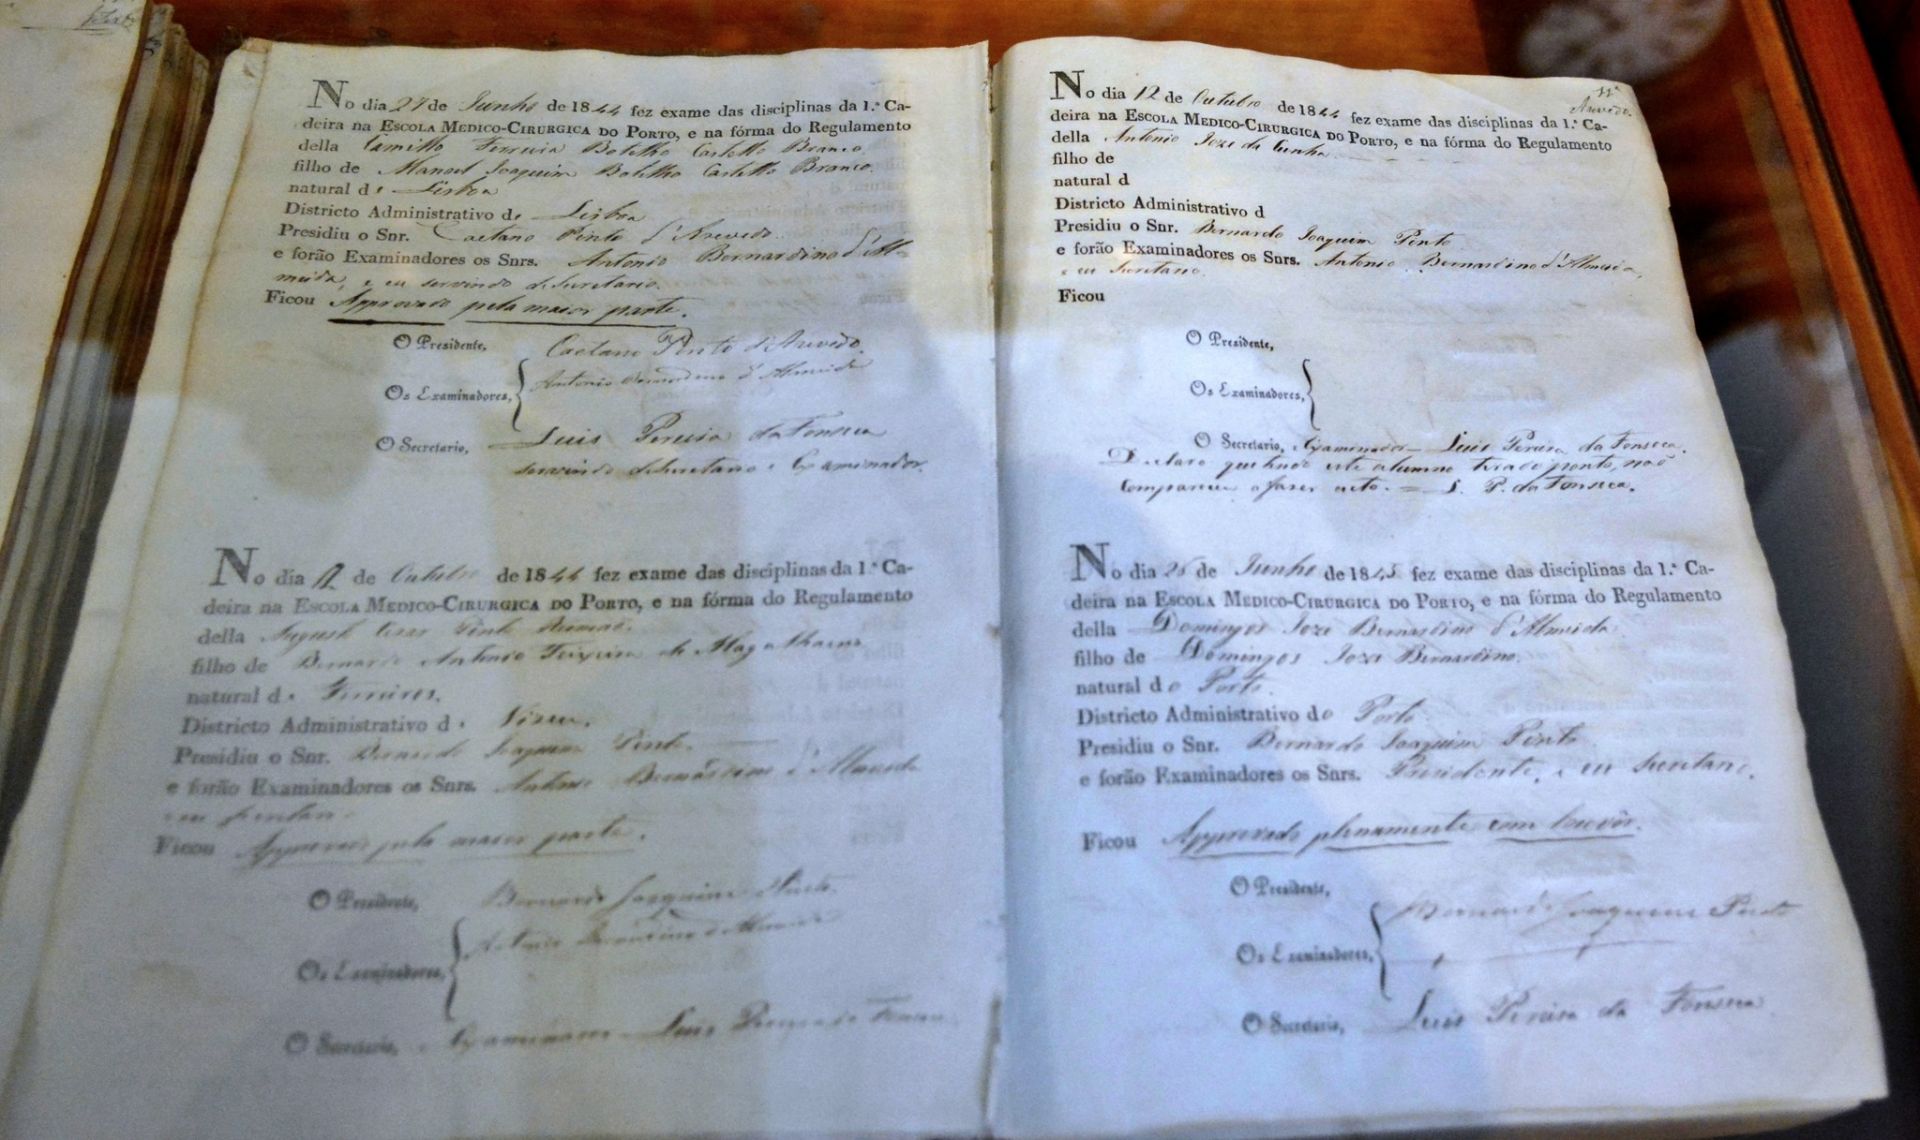 No dia 27 de Junho de 1844 fez exame das disciplinas da 1.ª Ca-
deira na Escola Medico-Cirurgica do Porto, e na fórma do Regulamento
della Camillo Ferreira Botelho Castello Branco
filho de Manoel Joaquim Botelho Castello Branco.
natural de Lisboa
Districto Administrativo de Lisboa
Presidiu o Snr. Caetano Pinto d'Azevedo
e forão Examinadores os Snrs. Antonio Bernardino d'Al-
meida, e eu servindo de Secretario.
Ficou Approvado pela maior parte.
O Presidente, Caetano Pinto d'Azevedo.
Os Examinadores, Antonio Bernardino d'Almeida
O Secretario, Luis Pereira da Fonseca
servindo de Secretario e Examinador.
No dia 12 de Outubro de 1844 fez exame das disciplinas da 1.ª Ca-
deira na Escola Medico-Cirurgica do Porto, e na fórma do Regulamento
della Augusto Cesar Pinto
filho de Bernardo Antonio Teixeira de Magalhaens
natural de
Districto Administrativo de Viseu.
Presidiu o Snr. Bernardo Joaquim Pinto.
e forão Examinadores os Snrs. Antonio Bernardino d'Almeida
e eu Secretario.
Ficou Approvado pela maior parte.
O Presidente, Bernardo Joaquim Pinto.
Os Examinadores, Antonio Bernardino d'Almeida
O Secretario, e Examinador Luis Pereira da Fonseca
Azevedo.
No dia 12 de Outubro de 1844 fez exame das disciplinas da 1.ª Ca-
deira na Escola Medico-Cirurgica do Porto, e na fórma do Regulamento
della Antonio Joze da Cunha
filho de
natural d
Districto Administrativo d
Presidiu o Snr. Bernardo Joaquim Pinto
e forão Examinadores os Snrs. Antonio Bernardino d'Almeida,
e eu Secretario.
Ficou
O Presidente,
Os Examinadores,
O Secretario, e Examinador - Luis Pereira da Fonseca.
Declaro que tendo este alumno tirado ponto, não
compareceu a fazer acto. = L. P. da Fonseca.
No dia 26 de Junho de 1845 fez exame das disciplinas da 1.ª Ca-
deira na Escola Medico-Cirurgica do Porto, e na fórma do Regulamento
della Domingos Joze Bernardino d'Almeida
filho de Domingos Joze Bernardino.
natural do Porto.
Districto Administrativo do Porto
Presidiu o Snr. Bernardo Joaquim Pinto
e forão Examinadores os Snrs. Presidente, e eu Secretario.
Ficou Approvado plenamente com louvôr.
O Presidente, Bernardo Joaquim Pinto
Os Examinadores,
O Secretario, Luis Pereira da Fonseca